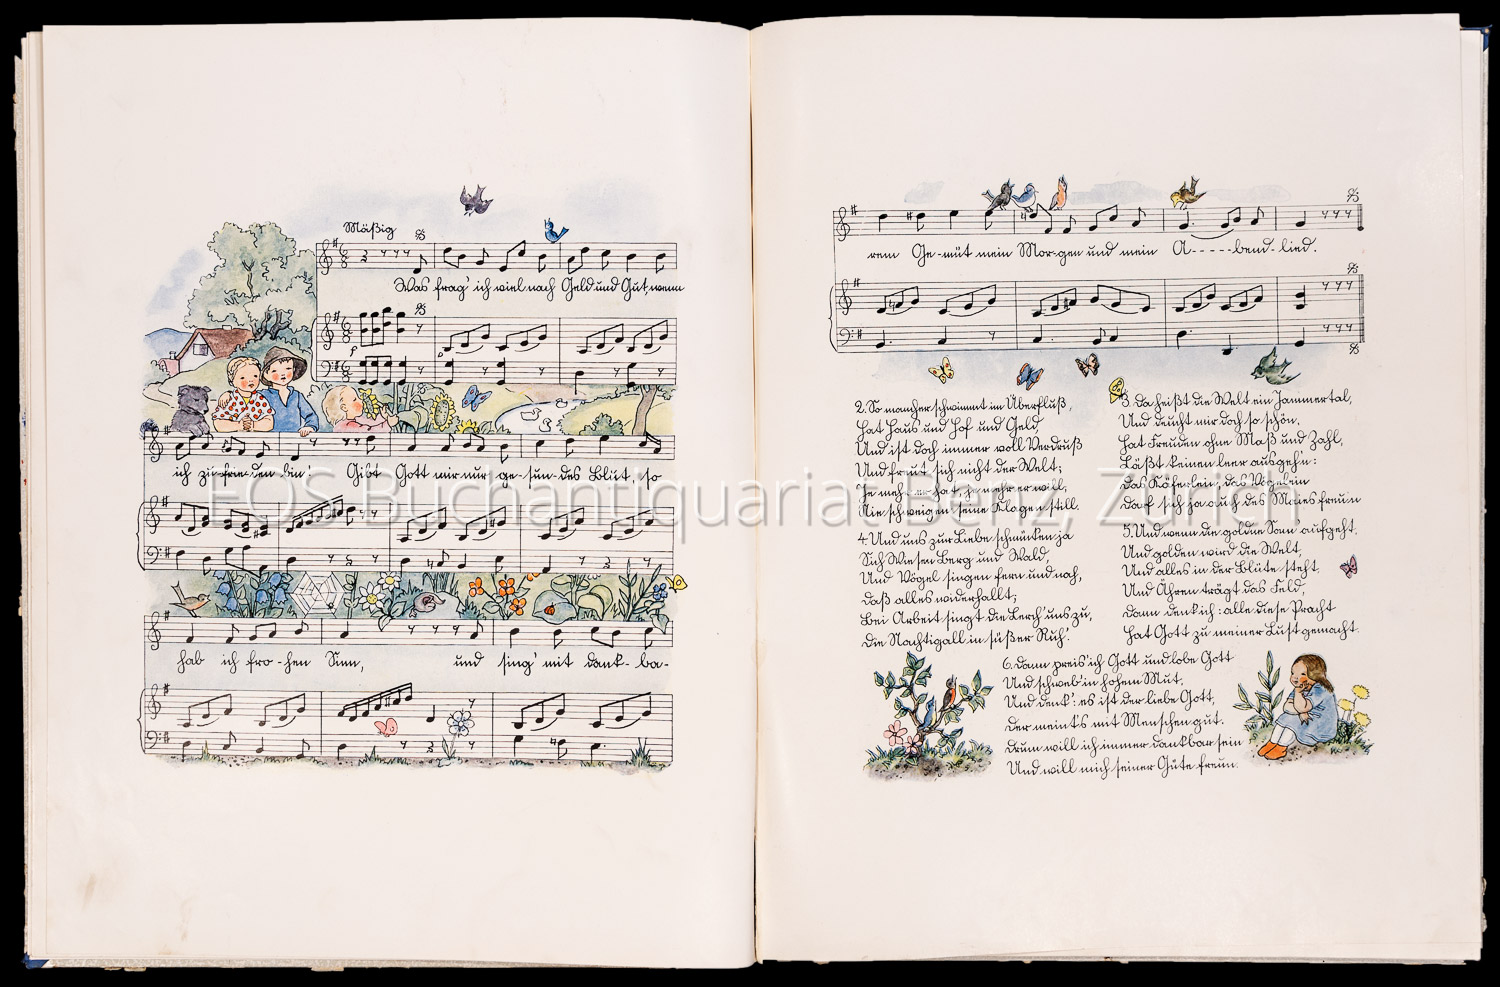 Mäßig
Was frag' ich viel nach Geld und Gut, wenn
ich zufrieden bin! Gibt Gott mir nur ge-sun-des Blut, so
hab ich fro-hen Sinn, und sing' mit dank-ba-
rem Ge-müt mein Mor-gen und mein A-----bend-lied.
2. So mancher schwimmt im Überfluß,
Hat Haus und Hof und Geld
Und ist doch immer voll Verdruß
Und freut sich nicht der Welt;
Je mehr er hat, je mehr er will,
Nie schweigen seine Klagen still.
3. Da heißt die Welt ein Jammertal,
Und deucht mir doch so schön,
Hat Freuden ohne Maß und Zahl,
Läßt keinen leer ausgehn:
Das Käferlein, das Vögelein
Darf sich ja auch des Maies freun
4. Und uns zur Liebe schmücken ja
Sich Wiesen Berg und Wald,
Und Vögel singen fern und nah,
Daß alles widerhallt;
Bei Arbeit singt die Lerch' uns zu,
Die Nachtigall in süßer Ruh'.
5. Und wenn die goldne Sonn' aufgeht,
Und golden wird die Welt,
Und alles in der Blüte steht
Und Ähren trägt das Feld,
Dann denk ich: alle diese Pracht
Hat Gott zu meiner Lust gemacht.
6. Dann preis' ich Gott und lobe Gott
Und schweb' in hohem Mut,
Und denk': es ist der liebe Gott,
Der meint's mit Menschen gut.
Drum will ich immer dankbar sein
Und will mich seiner Güte freun.
EOS Buchantiquariat Benz, Zürich